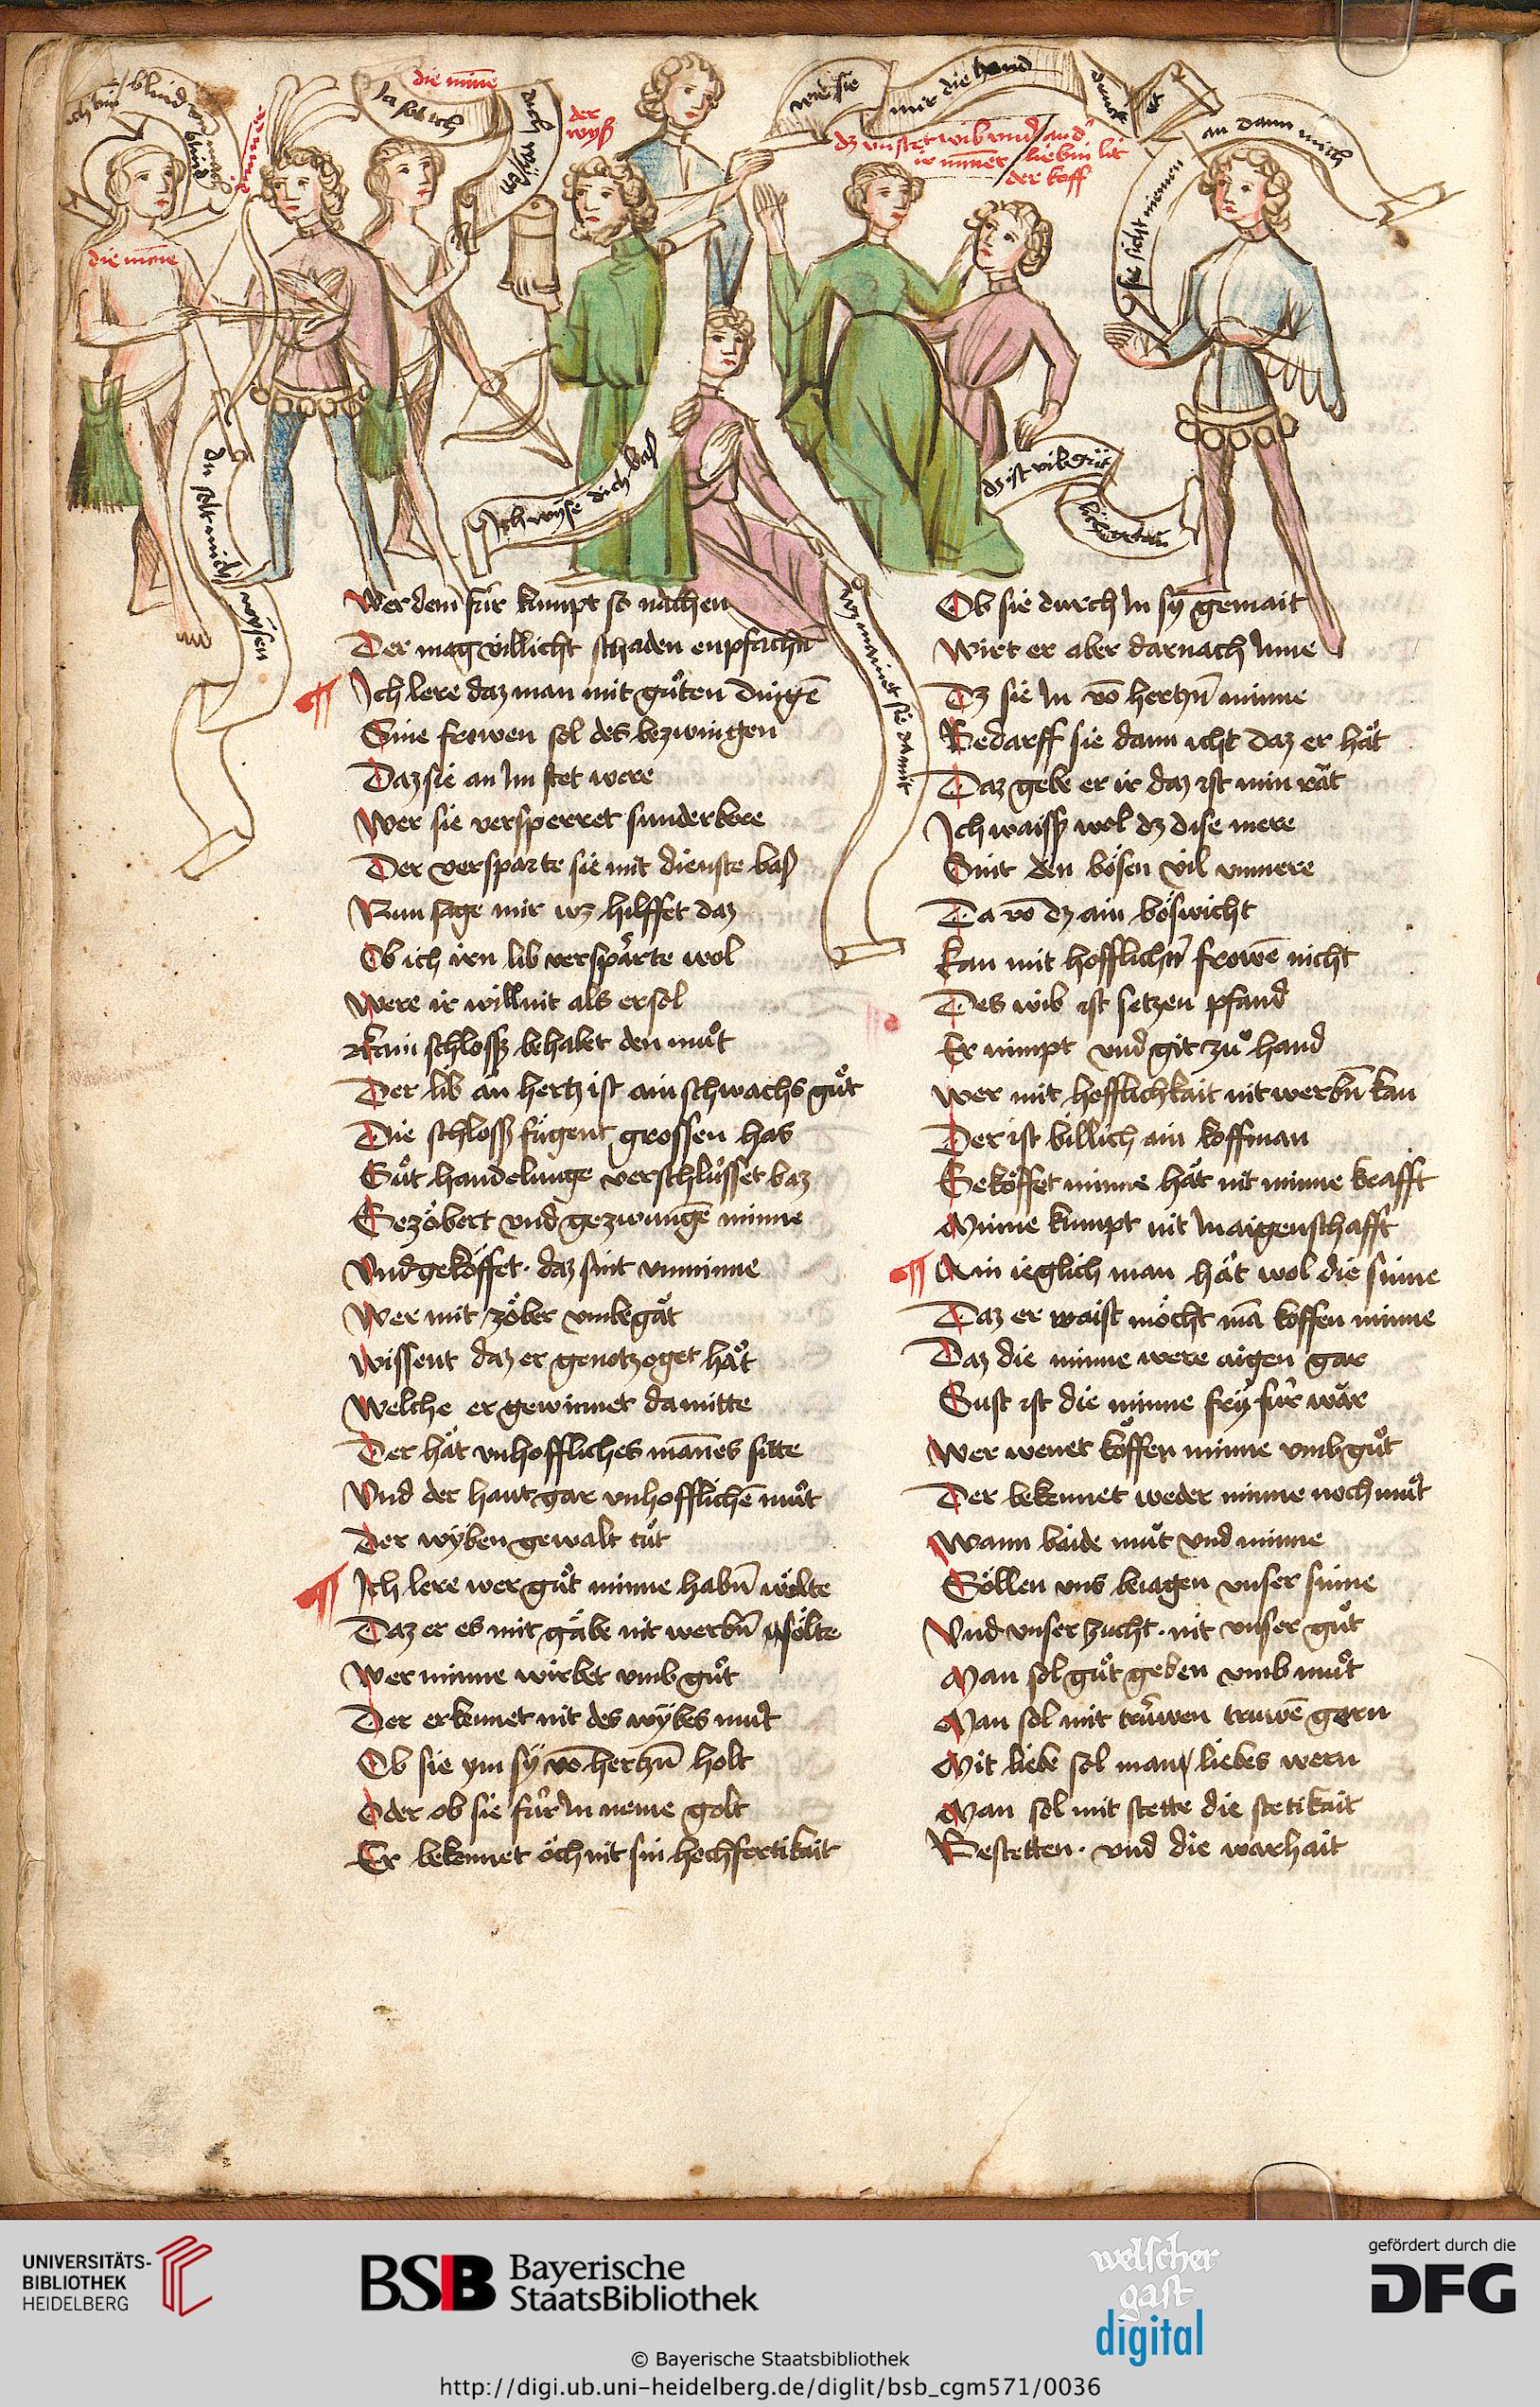 die minne
der
wyß
die minne
Ich wyse dich baß
du solt mich wysen
waz mainet sie damit
wie sie
mir die hand
an dann mich
sie sicht mienen
dz ist vil
Wer dem für kumpt so nachen
Der mag villicht schaden enpfachn
Ich lere daz man mit guͦten dingē
Sine frowen sol des bezwingen
Daz sie an Im stet were
Wer sie versperret sunderbere
Der versparte sie mit dienste baß
Nun sage mir wz hilffet daz
Ob ich irn lib versparte wol
Were ir will nit als er sol
Kain schlosß behabet den muͦt
Der lib an hertz ist ain schwachs guͦt
Die schlosß fügent grossen has
Guͦt handelunge verschlüsset baz
Gezöbert vnd gezwungē minne
Vnd geköffet. daz sint vnminne
Wer mit zöber vmbegät
Wissent daz er genotzoget hät
Welche er gewinnet da mitte
Der hät vnhoffliches mānes sitte
Vnd der haut gar vnhofflichē muͦt
Der wyben gewalt tuͦt
Ich lere wer guͦt minne habn̄ wölte
Daz er es mit gäbe nit werbn̄ sölte
Wer minne wirbet vmb guͦt
Der erkennet nit des wybes muͦt
Ob sie ym sy vō hertzn̄ holt
Oder ob sie für In neme golt
Er bekennet öch nit sin hochfertikait
Ob sie durch In sy gemait
Wirt er aber darnach Inne
Dz sie In vō hertzn̄ minne
Bedarff sie dann icht daz er hät
Daz gebe er ir daz ist min rät
Ich waisß wol dz dise mere
Sint den bösen vil vnmere
Da vō dz ain böswicht
Kan mit hofflichn̄ frowē nicht
Des wib ist setzen pfand
Er nimpt vnd git zuͦ hand
Wer mit hofflichkait nit werbn̄ kan
Der ist billich ain koffman
Geköffet minne hät nit minne krafft
Minne kumpt nit In aigenschafft
Ain ieglich man hät wol die sinne
Daz er waist möcht mā koffen minne
Daz die minne were aigen gar
Sust ist die minne fry für war
Wer wenet köffen minne vmb guͦt
Der bekennet weder minne noch muͦt
Wann baide muͦt vnd minne
Söllen vns beiagen vnser sinne
Vnd vnser zucht. nit vnser guͦt
Man sol guͦt geben vmb muͦt
Man sol mit trüwen truwē gern
Mit liebe sol man liebes wern
Man sol mit stette die stetikait
Bestetten. vnd die warhait
UNIVERSITÄTS-
BIBLIOTHEK
HEIDELBERG
BSB Bayerische
StaatsBibliothek
welscher
gast
digital
gefördert durch die
DFG
© Bayerische Staatsbibliothek
http://digi.ub.uni-heidelberg.de/diglit/bsb_cgm571/0036